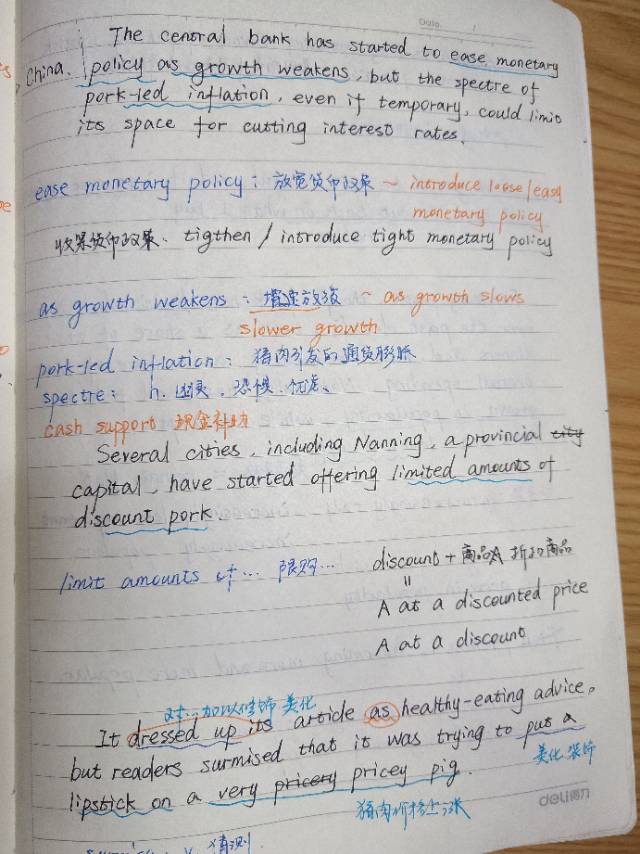 Date.
The central bank has started to ease monetary
China. policy as growth weakens, but the spectre of
pork-led inflation, even if temporary, could limit
its space for cutting interest rates.
ease monetary policy: 放宽货币政策 ~ introduce loose/easy
monetary policy
收紧货币政策. tigthen / introduce tight monetary policy
as growth weakens: 增速放缓 ~ as growth slows
slower growth
pork-led inflation: 猪肉引发的通货膨胀
spectre: n. 幽灵. 恐惧. 忧虑.
cash support 现金补助
Several cities, including Nanning, a provincial city
capital, have started offering limited amounts of
discount pork.
limit amounts of... 限购... discount + 商品A 折扣商品
=
A at a discounted price
A at a discount
对...加以修饰 美化
It dressed up its article as healthy-eating advice,
but readers surmised that it was trying to put a
美化 装饰
lipstick on a very pricery pricey pig.
猪肉价格上涨
deli得力
v. 猜测.